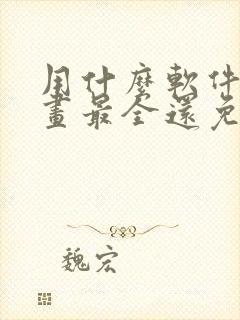 用什麼軟件
畫最全還免
魏宏